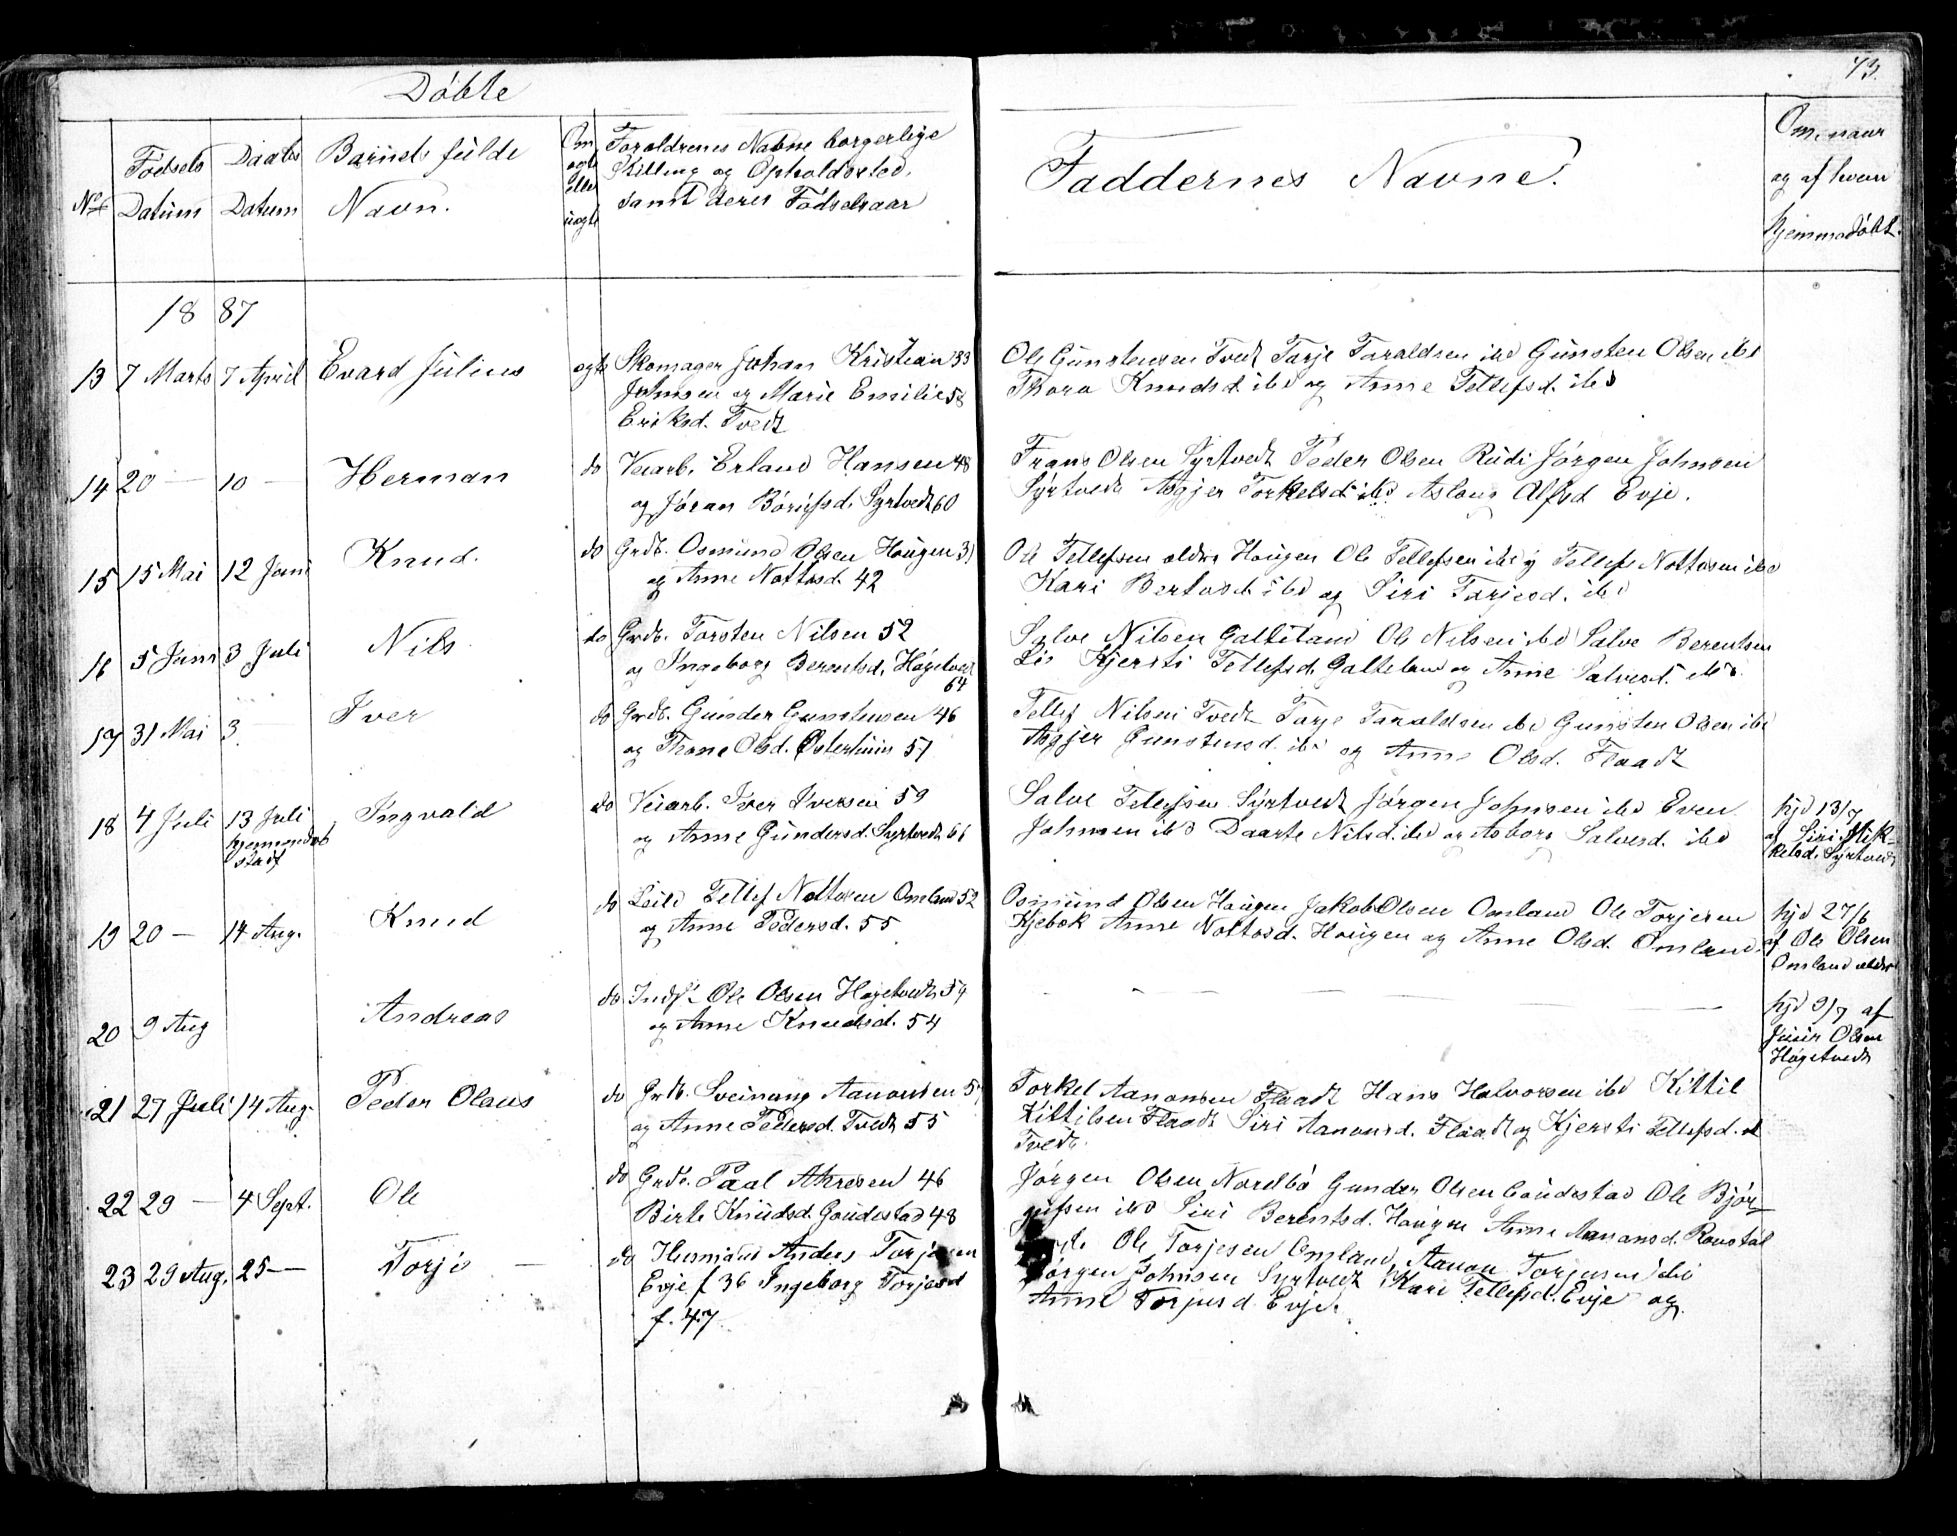 Døbte
73.
No
Fødsels Datum
Daabs Datum
Barnets fulde Navn.
Om ægte eller uægte
Forældrenes Navne borgerlige
Stilling og Opholdssted.
samt deres Fødselsaar
Faddernes Navne.
Om, naar
og af hvem
hjemmedøbt.
1887
13 7 Marts 7 April Evard Julius ægte Skomager Johan Kristian 33
Johnsen og Marie Emilie 58
Eriksd. Tvedt
Ole Gunstensen Tvedt Torje Taraldsen ibd Gunsten Olsen ibd
Thora Knudsd. ibd og Anne Tellefsd. ibd
14 20 — 10 — Herman do Veiarb. Erland Hansen 48
og Jøran Børufsd. Syrtvedt 60
Frans Olsen Syrtvedt Peder Olsen Rudi Jørgen Johnsen
Syrtvedt Asgjer Torkelsd. ibd Aslaug Alfsd Evje.
15 15 Mai 12 Juni Knud. do Grdb. Osmund Olsen Hougen 31
og Anne Nottosd. 42
Ole Tellefsen ældre Hougen Ole Tellefsen ibd og Tellef Nottosen ibd
Kari Bertosd. ibd og Siri Tarjesd. ibd
16 5 Juni 3 Juli Nils do Grdb. Torsten Nilsen 52
og Ingeborg Berentsd. Høgetvedt
64
Salve Nilsen Galteland Ole Nilsen ibd Salve Berentsen
Lis Kjersti Tellefsd. Galteland og Anne Salvesd. ibd.
17 31 Mai 3 — Iver do Grdb. Gunder Gunstensen 46
og Thone Olsd. Østerhuus 57
Tellef Nilsen Tvedt Torje Taraldsen ibd Gunsten Olsen ibd
Asgjer Gunstensd. ibd og Anne Olsd. Flaadt
18 4 Juli 13 Juli Ingvald do Veiarb. Iver Iversen 59
hjemmedøb
stadf
og Anne Gundersd. Syrtvedt 66
Salve Tellefsen Syrtvedt Jørgen Johnsen ibd Even
Johnsen ibd Daarte Nilsd. ibd og Asborg Salvesd. ibd
hjd 13/7
af Siri Mik-
kelsd. Syrtvedt
19 20 — 14 Aug. Knud do Leild Tellef Nottosen Omland 52
og Anne Pedersd. 55
Osmund Olsen Hougen Jakob Olsen Omland Ole Torjesen
Kjebek Anne Nottosd. Hougen og Anne Olsd. Omland.
hjd 27/6
af Ole Olsen
Omland ældre
20 9 Aug Andreas do Inds. Ole Olsen Høgetvedt 54
og Anne Knudsd. 54
hjd 9/7 af
Olsen
Høgetvedt
21 27 Juli 14 Aug. Peder Olaus do Grdb. Sveinung Aanonsen 57
og Anne Pedersd. Tvedt 55
Torkel Aanonsen Flaadt Hans Halvorsen ibd Kittil
Kittilsen Flaadt Siri Aanonsd. Flaadt og Kjersti Tellefsd.
Tvedt.
22 29 — 4 Sept. Ole do Grdb. Paal Akresen 46
Birte Knudsd. Goudestad 48
Jørgen Olsen Nordbø Gunder Olsen Goudestad Ole Bjør-
gufsen ibd Siri Berentsd. Hougen Anne Aanonsd.
23 29 Aug. 25 — Torje — do Husmand Anders Torjesen
Evje f 36 Ingeborg Torjesd
f. 47
Ole Torjesen Omland, Aanon Torjusen ibd
Jørgen Johnsen Syrtvedt Kari Tellefsd. Evje og
Anne Torjusd. Evje.